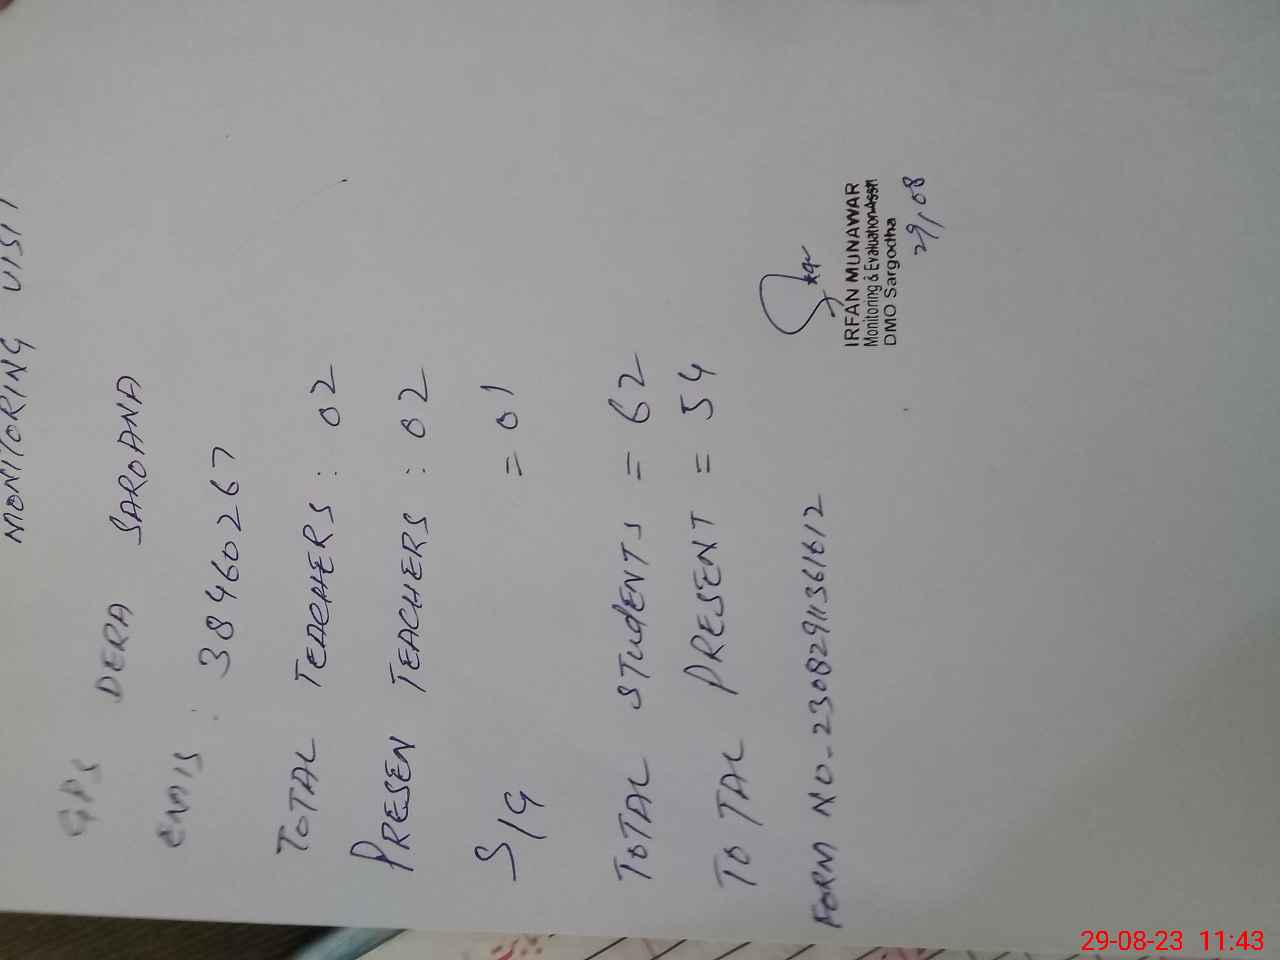 MONITORING VISIT
GPS DERA SAROANA
EMIS : 38460267
TOTAL TEACHERS : 02
PRESEN TEACHERS : 02
S/G = 01
TOTAL STUDENTS = 62
TOTAL PRESENT = 54
FORM NO-23082911361612
IRFAN MUNAWAR
Monitoring & Evaluation Assti
DMO Sargodha
29/08
29-08-23 11:43